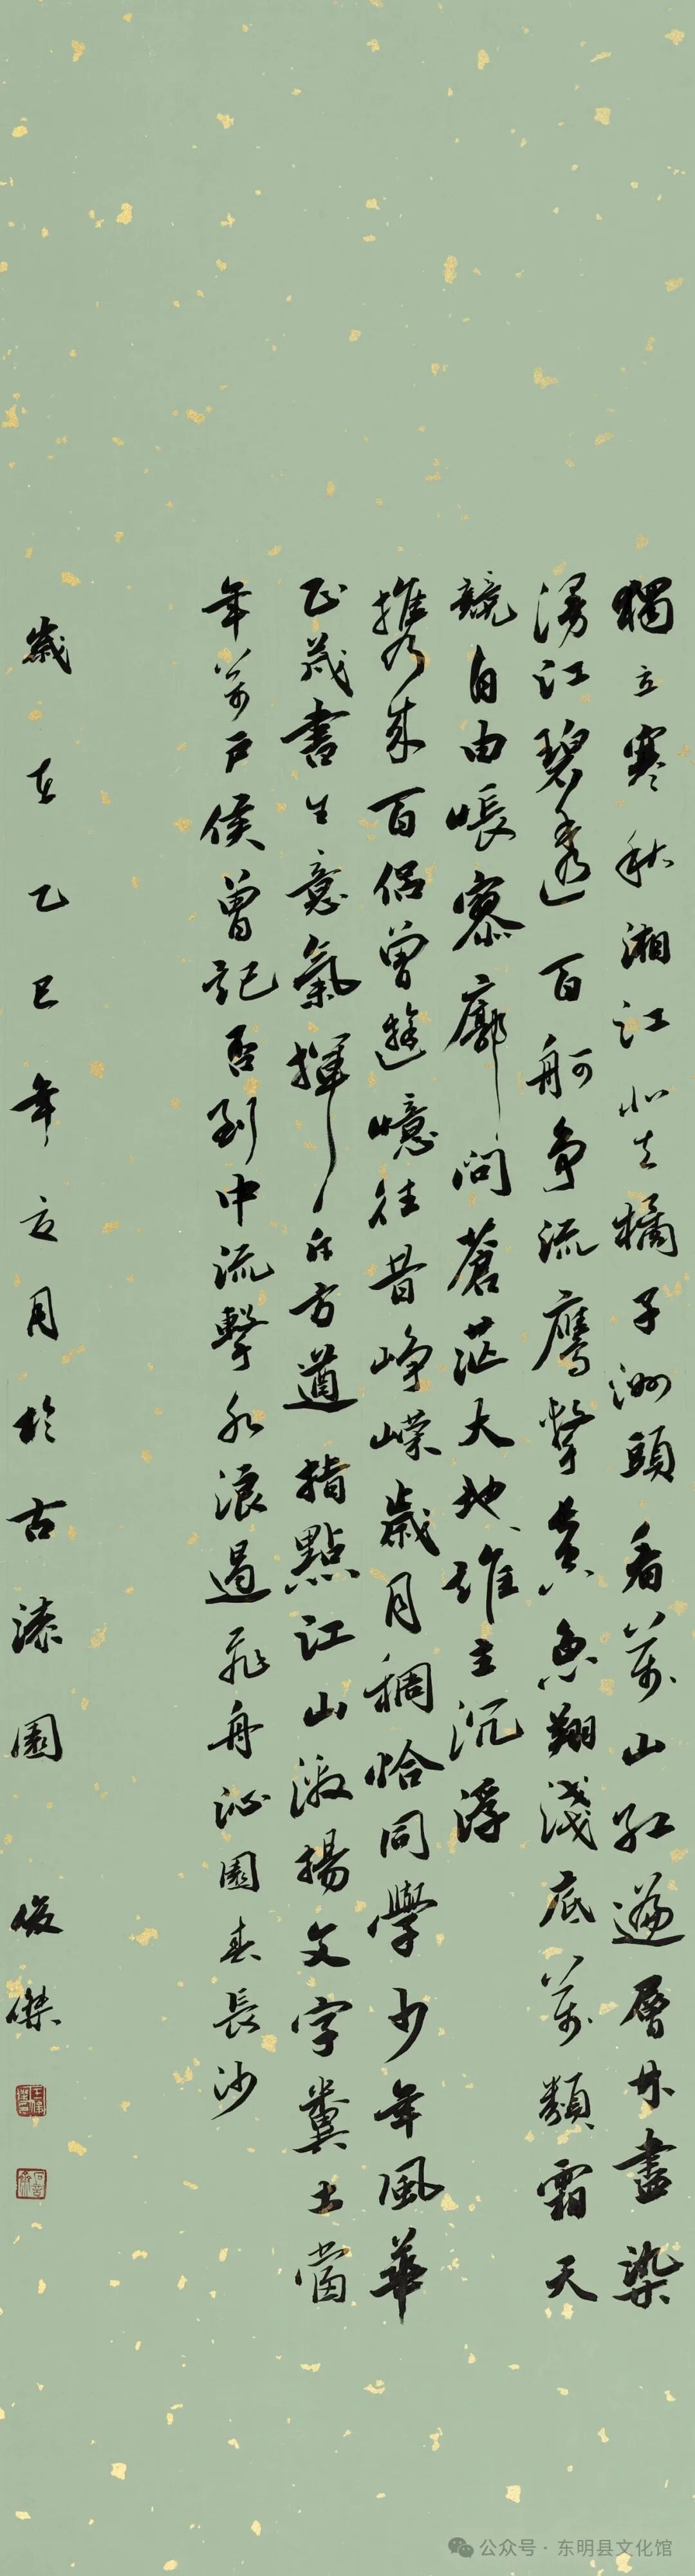 獨立寒秋湘江北去橘子洲頭看萬山紅遍層林盡染
漫江碧透百舸争流鷹擊長空魚翔淺底萬類霜天
競自由悵寥廓問蒼茫大地誰主沉浮
攜來百侣曾遊憶往昔崢嶸歲月稠恰同學少年風華
正茂書生意氣揮斥方遒指點江山激揚文字糞土當
年萬戶侯曾記否到中流擊水浪遏飛舟沁園春長沙
歲在乙巳年夏月於古漆園 俊傑
公众号·东明县文化馆